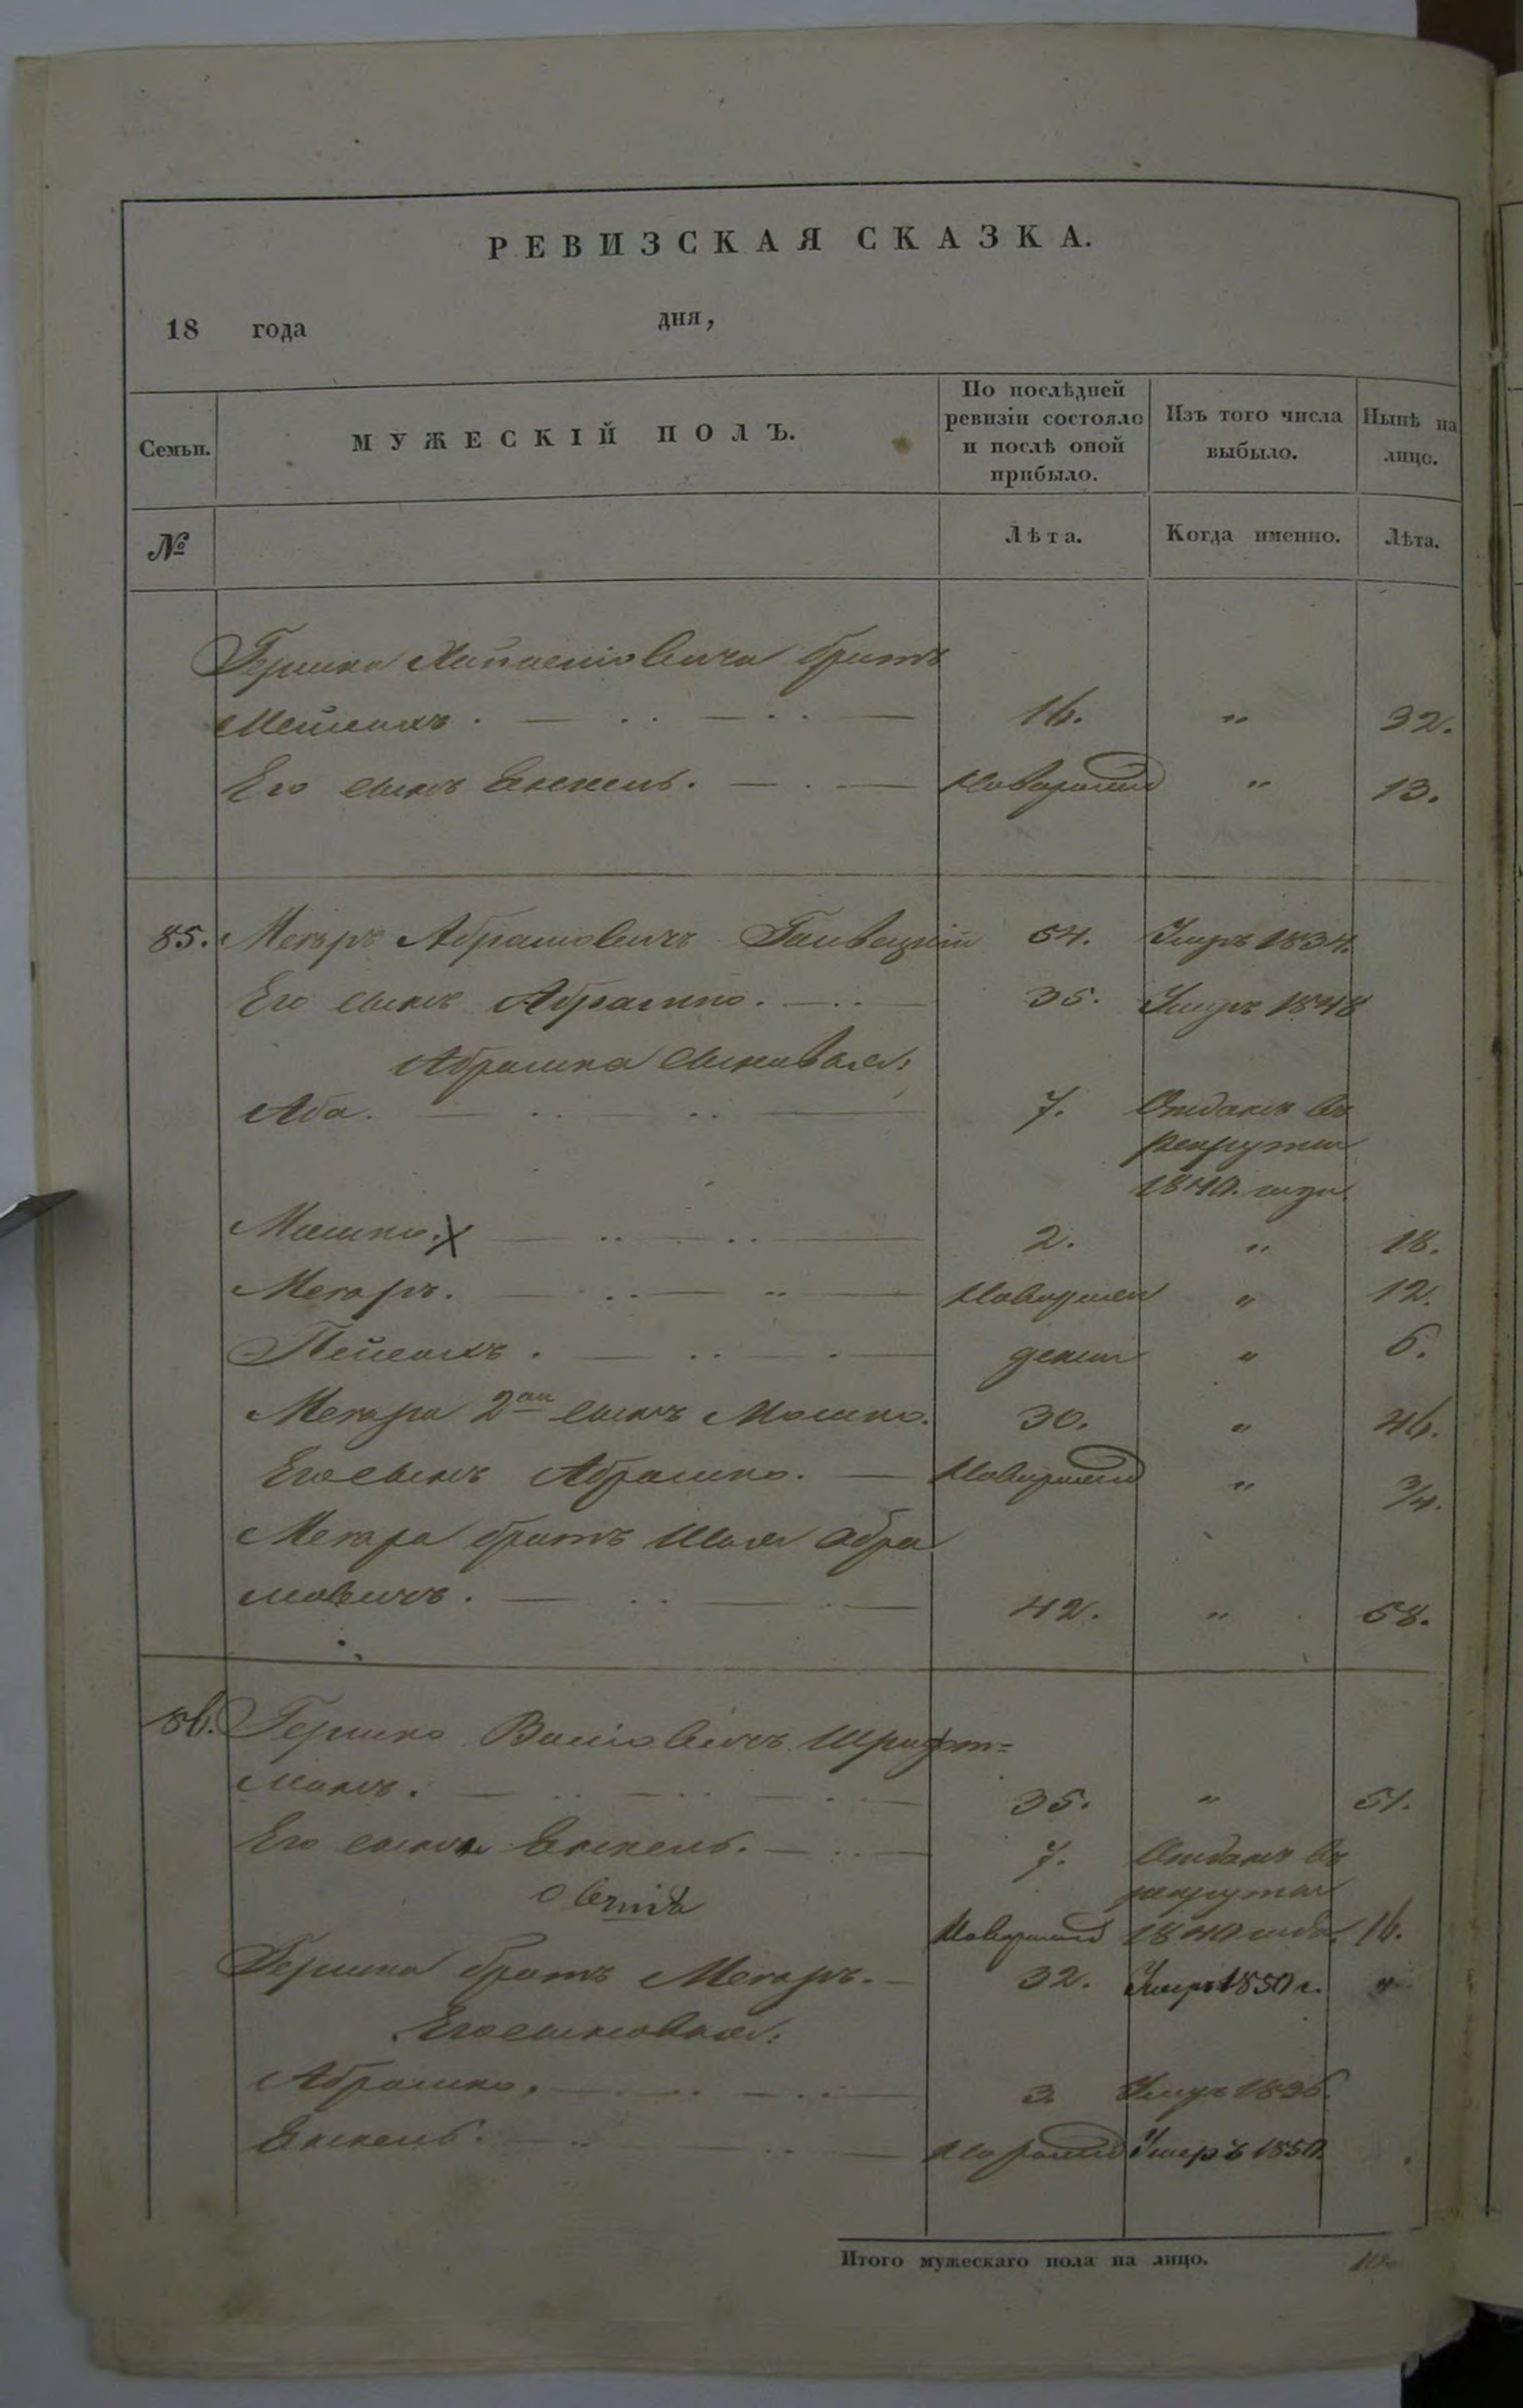 РЕВИЗСКАЯ СКАЗКА.
18 года дня,
Семьи. МУЖЕСКІЙ ПОЛЪ. По послѣдней ревизіи состояло и послѣ оной прибыло. Изъ того числа выбыло. Нынѣ на лицо.
№ Лѣта. Когда именно. Лѣта.
Гершка братъ
16. " 32.
Его сынъ Янкель. Новорожд " 13.
85. Мееръ Абрамовичъ 54. Умръ 1834.
Его сынъ Абрамко. 35. Умръ 1848
Абрамка сыновья:
Аба. 7. Отданъ въ
рекруты
1840. года.
Мошко. X 2. " 18.
Мееръ. Новорожден " 12.
Пейсахъ. " 6.
Меера 2ой сынъ Мошко. 30. " 46.
Его сынъ Абрамко. Новорожд " 3/4.
Меера братъ Шая Абра
мовичъ. 42. " 58.
86. Гершко Шрифт=
манъ. 35. " 51.
Его сынъ Янкель. 7. Отданъ въ
рекруты
Новорожд 1840 года. 16.
Гершка братъ Мееръ. 32. Умеръ 1850 г. "
Его сыновья:
Абрамко. 3. Умръ 1836.
Янкель. Умеръ 1850.
Итого мужескаго пола на лицо.